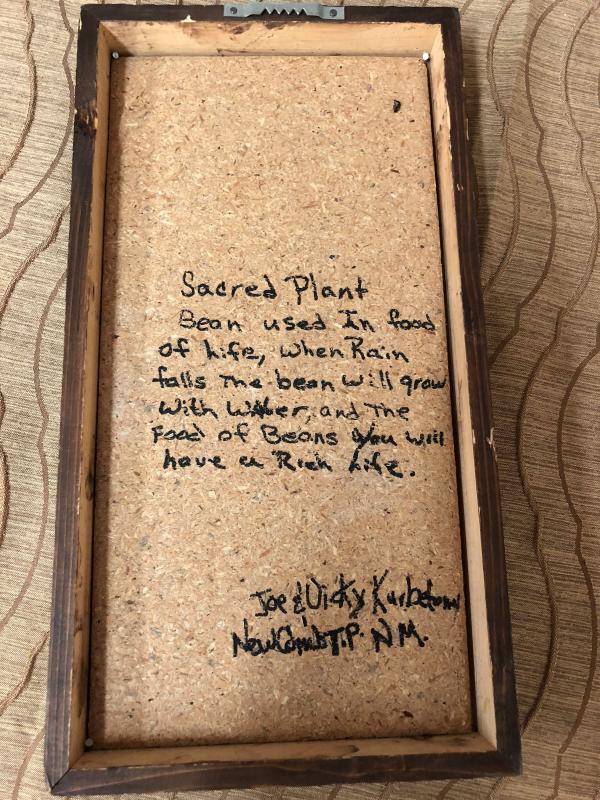 Sacred Plant
Bean used In food
of Life, when Rain
falls The bean will grow
with Water, and The
Food of Beans you will
have a Rich Life.
Joe & Vicky
NewComb T.P. N.M.